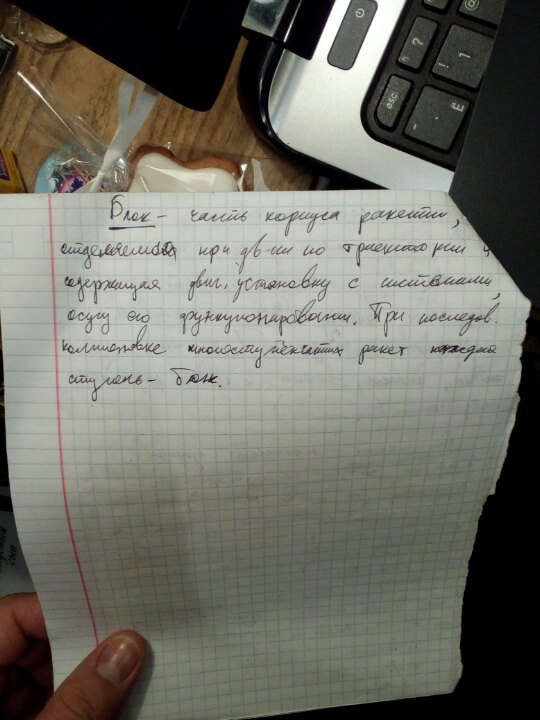 Блок - часть корпуса ракеты,
отделяемая при дв-ии по траектории и
содержащая двиг. установку с системами,
осущ его функционирования. При последов.
компоновке многоступенчатых ракет каждая
ступень - блок.
esc
?
1